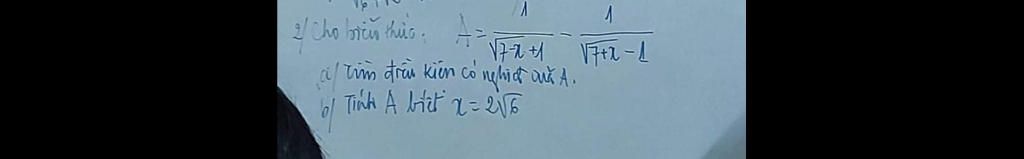 2/ Cho biểu thức: A = 1/(√(7-x) + 1) - 1/(√(7+x) - 1)
a/ Tìm điều kiện có nghĩa của A.
b/ Tính A biết x = 2√6